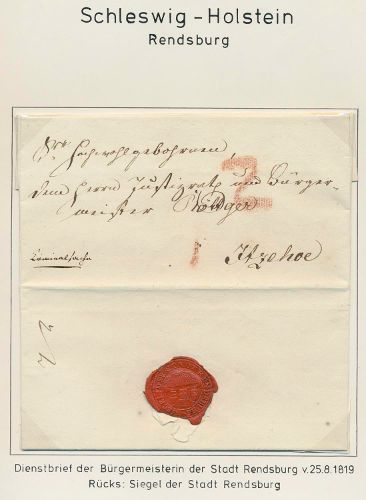 Schleswig-Holstein
Rendsburg
Sr Hochwohlgebohrnen,
dem Herrn Justizrath und Bürger-
meister Rötger
Itzehoe
Criminalsache
Dienstbrief der Bürgermeisterin der Stadt Rendsburg v.25.8.1819
Rücks: Siegel der Stadt Rendsburg